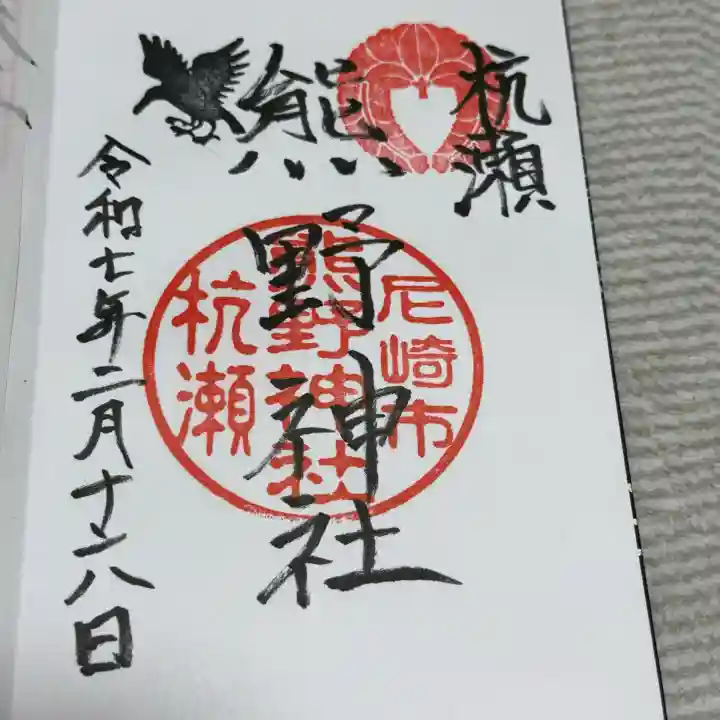 杭瀬
熊野神社
令和七年二月十六日
尼崎市
熊野神社
杭瀬